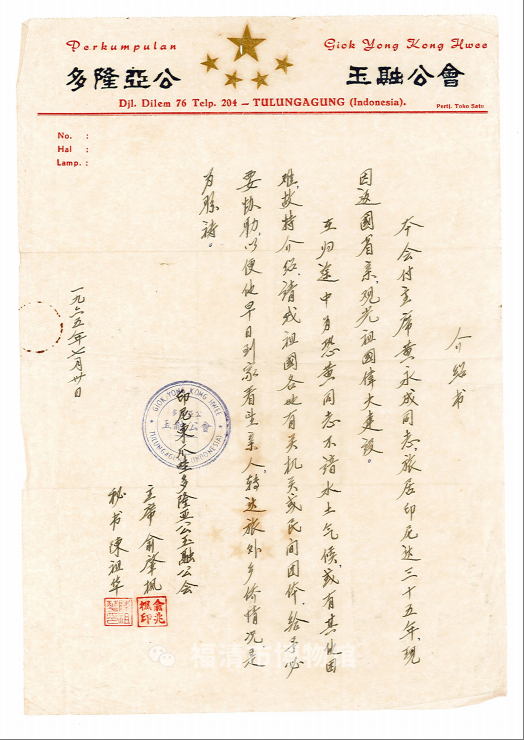 Perkumpulan
Giok Yong Kong Hwee
多隆亞公
玉融公會
Djl. Dilem 76 Telp. 204 — TULUNGAGUNG (Indonesia).
Pertj. Toko Satu
No. :
Hal :
Lamp. :
介紹书
本会付主席黄永成同志,旅居印尼达三十五年,现
因返國省亲,观光祖国偉大建設。
在归途中为恐黄同志不諳水土气候,或有其他困
难,故特介紹,請我祖國各地有关机关或民间团体,給予必
要协助,以便他早日到家看望亲人,转达旅外乡侨情况是
为所禱。
印尼東爪哇多隆亚公玉融公会
主席 俞肇枫
秘书 陳祖华
一九六五年七月廿日
GIOK YONG KONG HWEE
多隆亞公
玉融公會
TULUNGAGUNG INDONESIA
俞兆
楓印
福清市博物馆